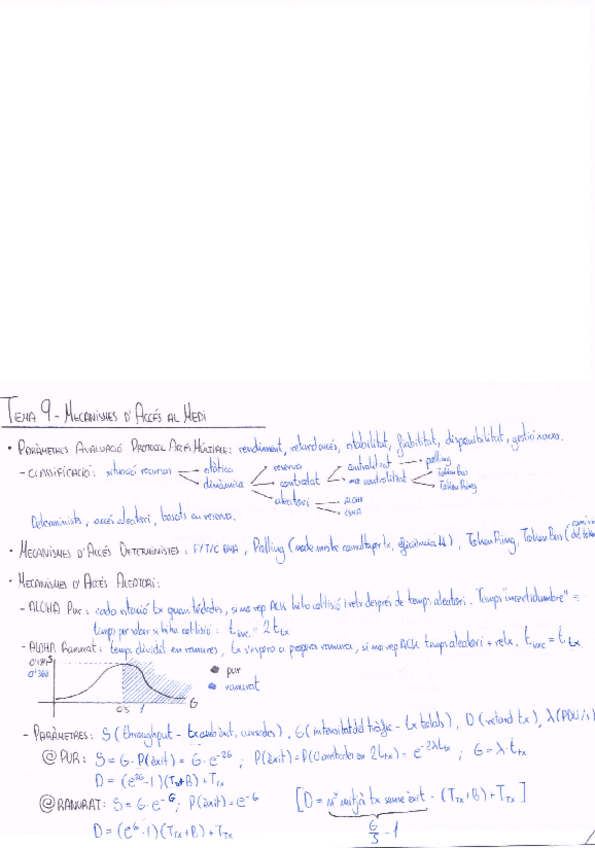 TEMA 9 - MECANISMES D'ACCÉS AL MEDI
• PARÀMETRES AVALUACIÓ PROTOCOL ACCÉS MÚLTIPLE: rendiment, retard accés, estabilitat, fiabilitat, disponibilitat, gestió xarxa.
- CLASSIFICACIÓ: situació recursos estàtica dinàmica reserva contrólat aleatori centralitzat no centralitzat polling Token Bus Token Ring ALOHA CSMA
Deterministes, accés aleatori, basats en reserva.
• MECANISMES D'ACCÉS DETERMINISTES: F/T/C DMA, Polling (node mestre consulta per tx, eficiència ↓↓), Token Ring, Token Bus (
• MECANISMES D'ACCÉS ALEATORI:
- ALOHA PUR: cada estació tx quan té dades, si no rep ACK hi ha col·lisió i retx després de temps aleatori. Temps "incertidumbre" =
temps per saber si hi ha col·lisió: t_inc. = 2 t_tx
- ALOHA Ranurat: temps dividit en ranures, tx sempre a propera ranura, si no rep ACK temps aleatori + retx. t_inc = t_tx
S
0'368
0'5 1 G
pur
ranurat
- PARÀMETRES: S (throughput - tx amb èxit, cursades), G (intensitat del tràfic - tx totals), D (retard tx), λ (PDU/s)
@ PUR: S = G · P(èxit) = G · e^-2G ; P(èxit) = P(0 en 2t_tx) = e^-2λt_tx ; G = λ · t_tx
D = (e^2G - 1)(T_tx + B) + T_tx
@ RANURAT: S = G · e^-G ; P(èxit) = e^-G [D = nº mitjà tx sense èxit · (T_tx + B) + T_tx]
D = (e^G - 1)(T_tx + B) + T_tx G/S - 1